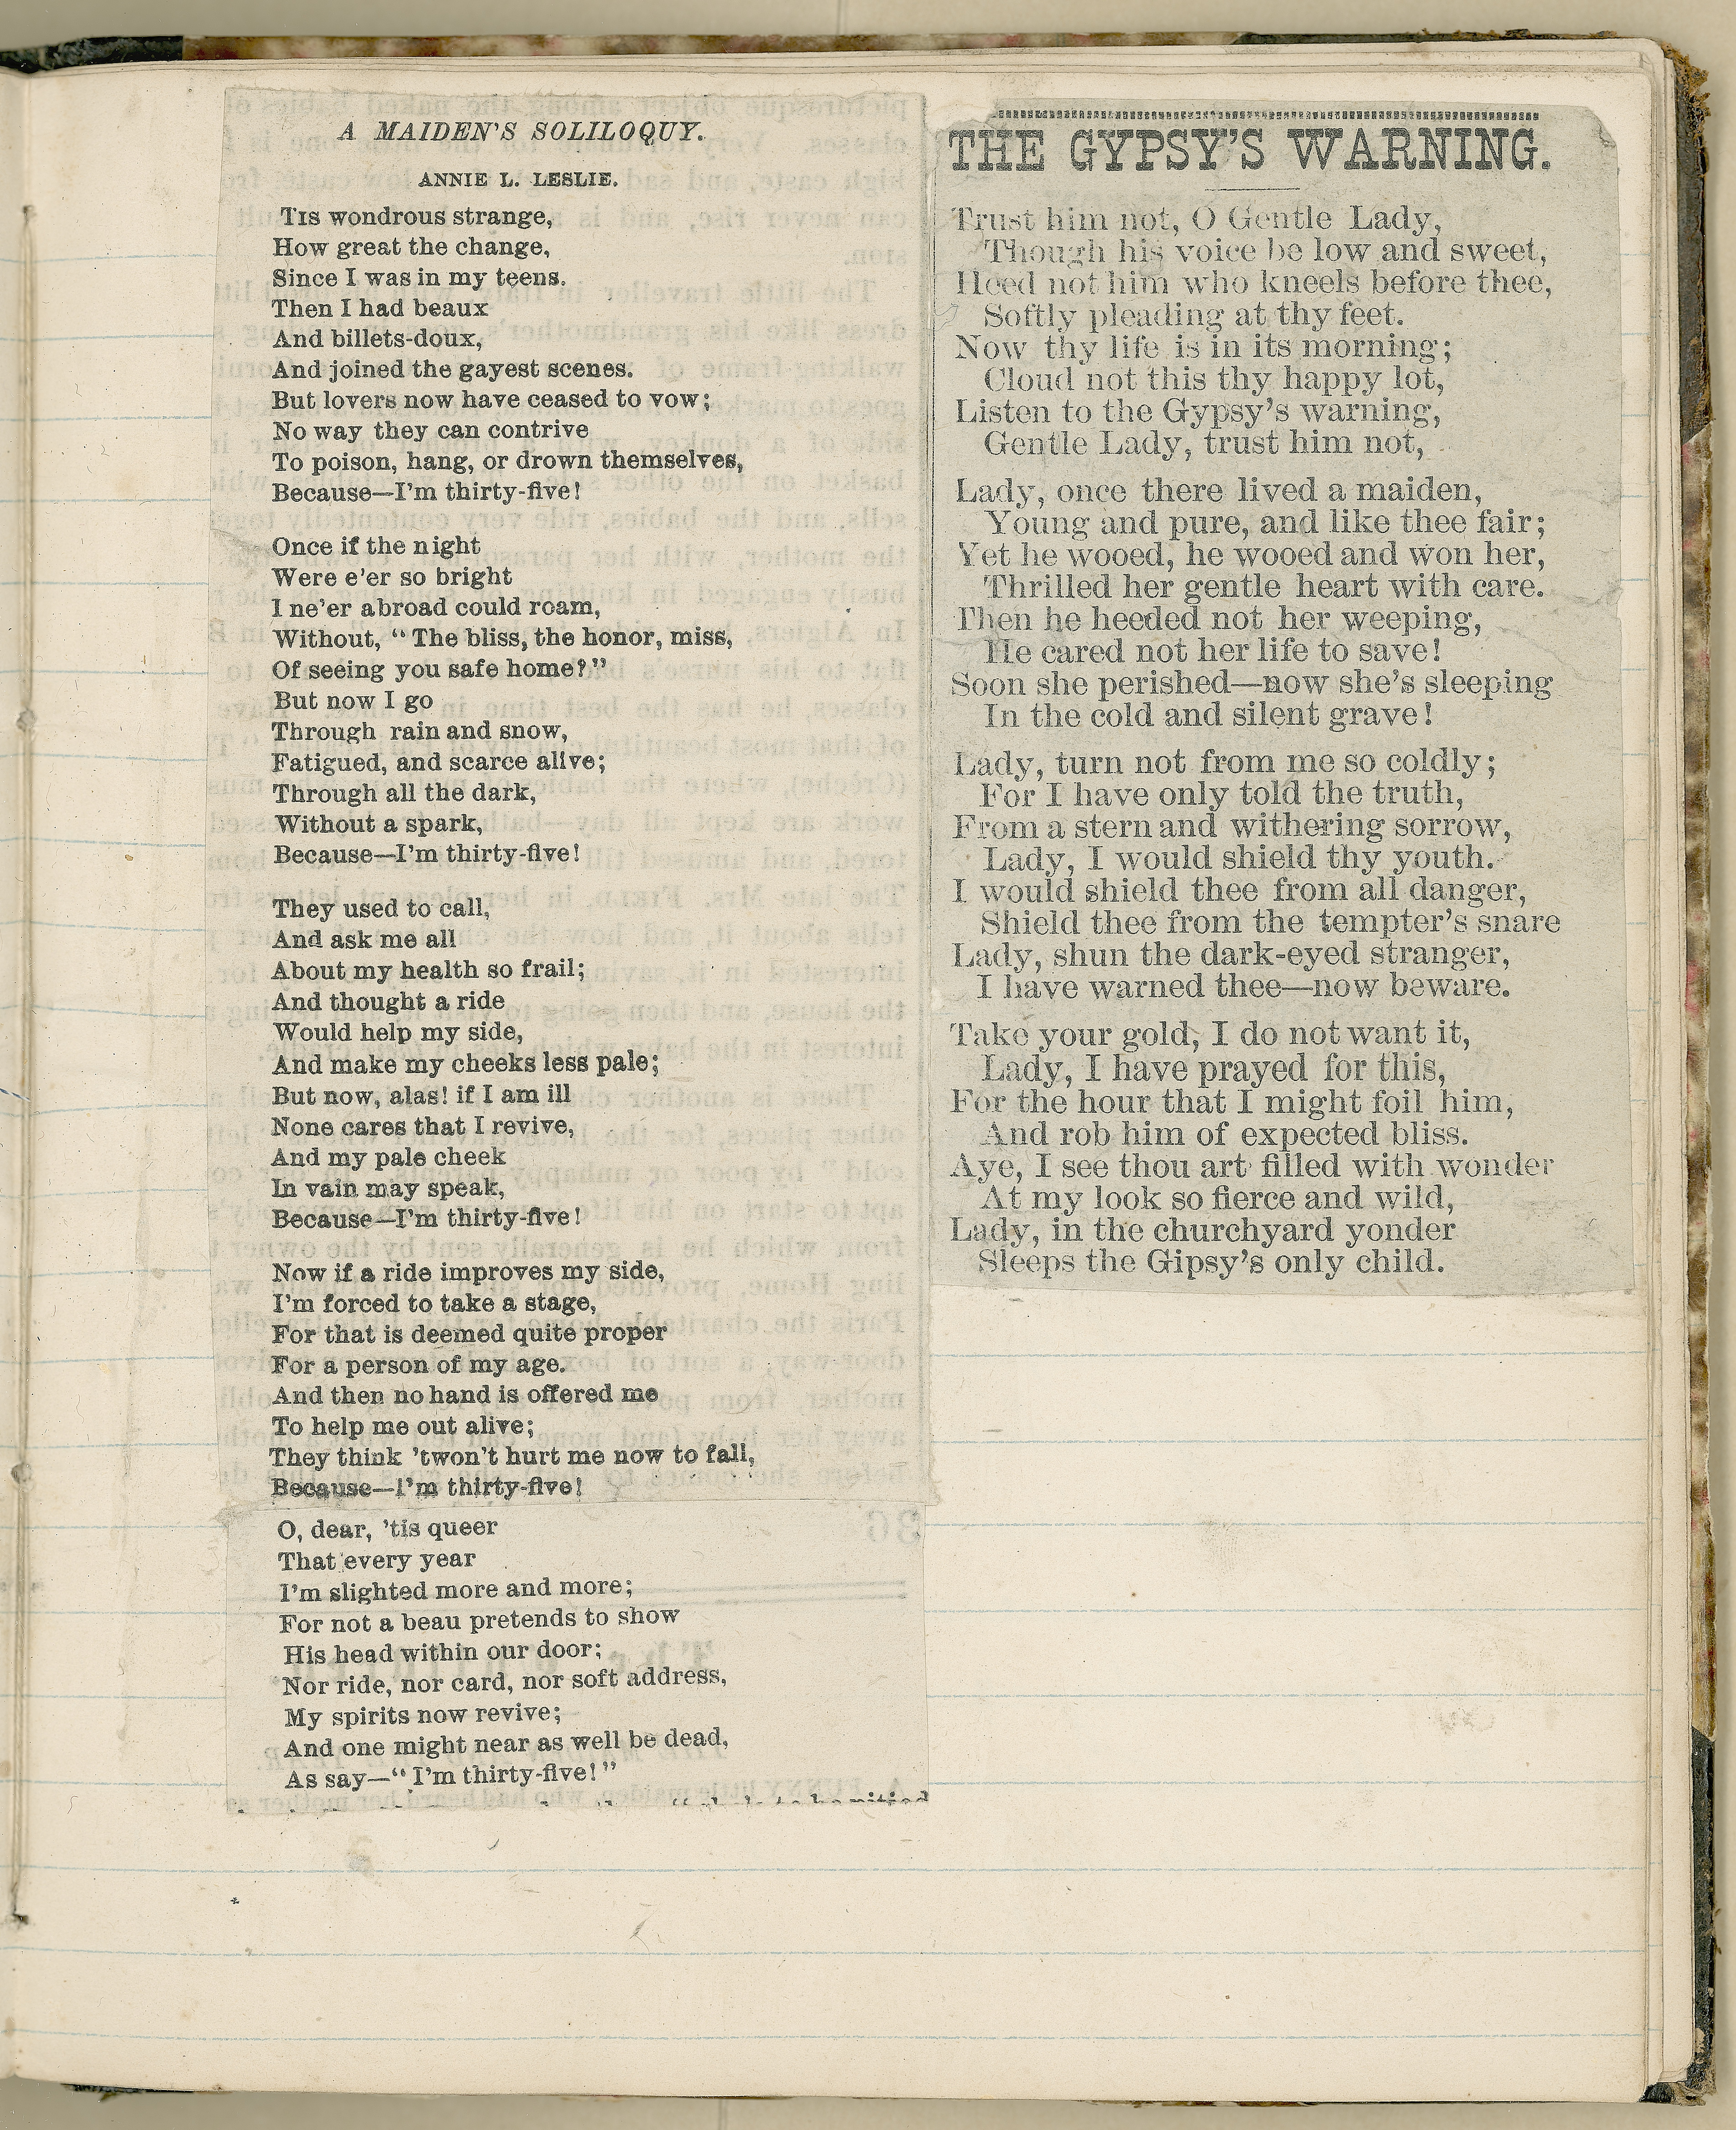 A MAIDEN'S SOLILOQUY.
ANNIE L. LESLIE.
TIS wondrous strange,
How great the change,
Since I was in my teens.
Then I had beaux
And billets-doux,
And joined the gayest scenes.
But lovers now have ceased to vow;
No way they can contrive
To poison, hang, or drown themselves,
Because—I'm thirty-five!
Once if the night
Were e'er so bright
I ne'er abroad could roam,
Without, "The bliss, the honor, miss,
Of seeing you safe home?"
But now I go
Through rain and snow,
Fatigued, and scarce alive;
Through all the dark,
Without a spark,
Because—I'm thirty-five!
They used to call,
And ask me all
About my health so frail;
And thought a ride
Would help my side,
And make my cheeks less pale;
But now, alas! if I am ill
None cares that I revive,
And my pale cheek
In vain may speak,
Because—I'm thirty-five!
Now if a ride improves my side,
I'm forced to take a stage,
For that is deemed quite proper
For a person of my age.
And then no hand is offered me
To help me out alive;
They think 'twon't hurt me now to fall,
Because—I'm thirty-five!
O, dear, 'tis queer
That every year
I'm slighted more and more;
For not a beau pretends to show
His head within our door;
Nor ride, nor card, nor soft address,
My spirits now revive;
And one might near as well be dead,
As say—"I'm thirty-five!"
THE GYPSY'S WARNING.
Trust him not, O Gentle Lady,
Though his voice be low and sweet,
Heed not him who kneels before thee,
Softly pleading at thy feet.
Now thy life is in its morning;
Cloud not this thy happy lot,
Listen to the Gypsy's warning,
Gentle Lady, trust him not,
Lady, once there lived a maiden,
Young and pure, and like thee fair;
Yet he wooed, he wooed and won her,
Thrilled her gentle heart with care.
Then he heeded not her weeping,
He cared not her life to save!
Soon she perished—now she's sleeping
In the cold and silent grave!
Lady, turn not from me so coldly;
For I have only told the truth,
From a stern and withering sorrow,
Lady, I would shield thy youth.
I would shield thee from all danger,
Shield thee from the tempter's snare
Lady, shun the dark-eyed stranger,
I have warned thee—now beware.
Take your gold, I do not want it,
Lady, I have prayed for this,
For the hour that I might foil him,
And rob him of expected bliss.
Aye, I see thou art filled with wonder
At my look so fierce and wild,
Lady, in the churchyard yonder
Sleeps the Gipsy's only child.